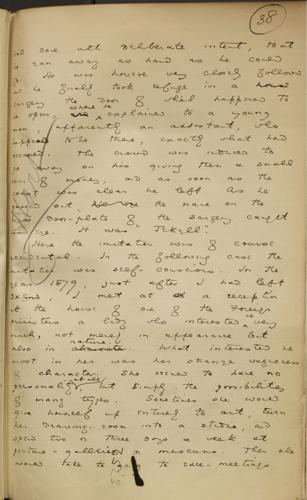 38
and done with deliberate intent, that
he ran away as hard as he could
He was however very closely followed
he finally took refuge in a
surgery the door of which happened to
be open, where he explained to a young
man, apparently an assistant who
happened to be there, exactly what had
occurred. The crowd was induced to
go away on his giving them a small
sum of money, and as soon as the
coast was clear he left. As he
passed out the name on the
brass door-plate of the surgery caught
his eye. It was "Jekyll".
Here the imitation was of course
accidental. In the following case the
imitation was self-conscious. In the
year 1879, just after I had left
Oxford, I met at a reception
at the house of one of the Foreign
Ministers a lady who interested me very
much, not merely in appearance but
nature.
also in What interested me
most in her was her strange vagueness
of character. She seemed to have no
personality at all, but simply the possibilities
of many types. Sometimes she would
give herself up entirely to art, turn
her drawing-room into a studio, and
spend two or three days a week at
picture-galleries or museums. Then she
would take to race-meetings